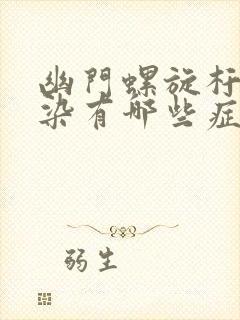 幽門螺旋杆
染有哪些症
弱生